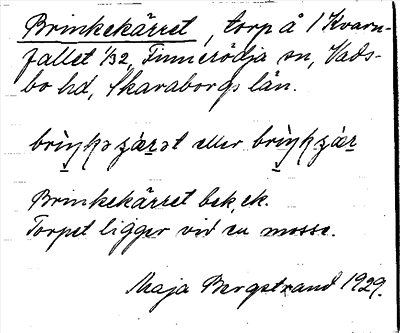 Brinkekärret, torp å 1 Kvarn-
fallet 1/32, Finnerödja sn, Vads-
bo hd, Skaraborgs län.
eller
Brinkekärret bek. ek.
Torpet ligger vid en mosse.
Maja Bergstrand 1929.